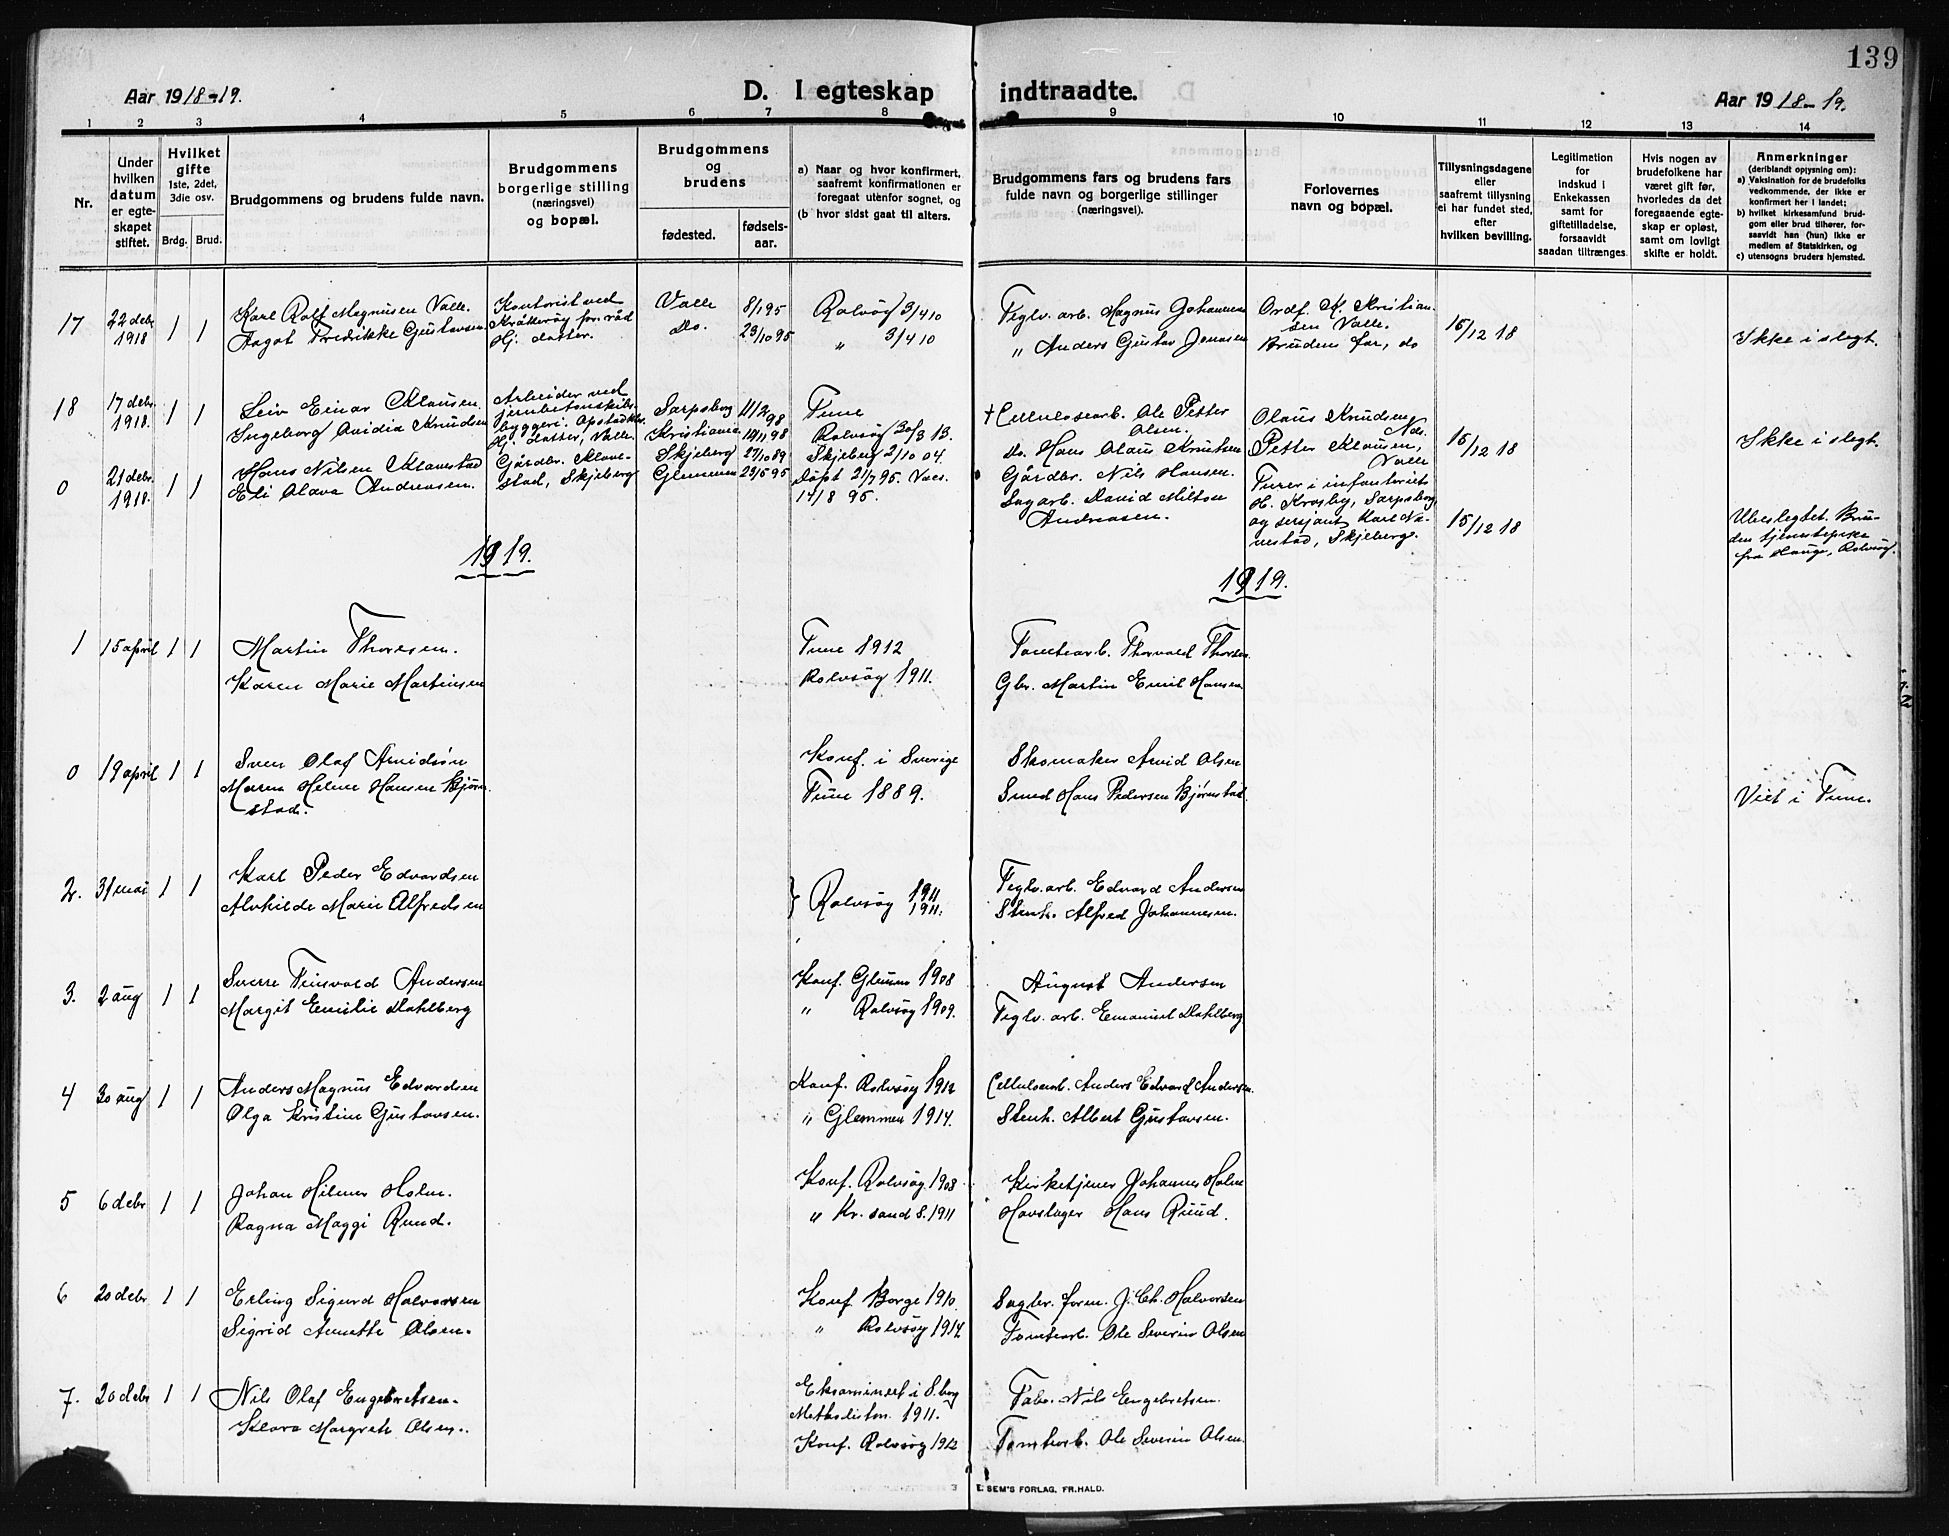 139
Aar 1918-19.
D. I egteskap indtraadte.
Aar 1918-19.
1 2 3 4 5 6 7 8 9 10 11 12 13 14
Nr.
Under hvilken datum er egteskapet stiftet.
Hvilket gifte 1ste, 2det, 3die osv.
Brdg. Brud.
Brudgommens og brudens fulde navn.
Brudgommens borgerlige stilling (næringsvei) og bopæl.
Brudgommens og brudens
fødested.
fødselsaar.
a) Naar og hvor konfirmert, saafremt konfirmationen er foregaat utenfor sognet, og
(b hvor sidst gaat til alters.
Brudgommens fars og brudens fars fulde navn og borgerlige stillinger (næringsvei).
Forlovernes navn og bopæl.
Tillysningsdagene eller saafremt tillysning ei har fundet sted, efter hvilken bevilling.
Legitimation for indskud i Enkekassen samt for giftetilladelse, forsaavidt saadan tiltrænges.
Hvis nogen av brudefolkene har været gift før, hvorledes da det foregaaende egteskap er opløst, samt om lovligt skifte er holdt.
Anmerkninger (deriblandt opjysning om):
a) Vaksination for de brudefolks vedkommende, der ikke er konfirmert her i landet;
b) hvilket kirkesamfund brudgom eller brud tilhører, forsaavidt han (hun) ikke er medlem af Statskirken, og
c) utensogns bruders hjemsted.
17 22 debr 1918 1 1
Karl Rolf Magnusen Valle.
Aagot Fredrikke Gustavsen
Kontorist ved Kråkerøy for. råd
Hj. datter.
Valle 8/1 95
Do. 23/10 95
Rolvsøy 3/4 10
„ 3/4 10
Teglv. arb. Magnus Johannesen
„ Anders Gustav Jonasen
Ordf. M. Kristiansen Valle.
Brudens far, do
15/12 18
Ikke i slegt.
18 17 debr 1918. 1 1
Leiv Einar Klausen.
Ingeborg Ovidia Knudsen
Arbeider ved jernbetonskibsbyggeri.
Hj. datter, Valle.
Sarpsborg 11/2 98
Kristiania 14/11 98
Tune
Rolvsøy 30/3 13.
† Cellulosearb. Ole Petter Olsen.
Do. Hans Olaus Knutsen
Olaus Knudsen Nds.
Petter Klausen, Valle
15/12 18
Ikke i slegt.
0 21 debr. 1918. 1 1
Hans Nilsen Klavestad
Eli Olava Andreasen.
Gårdbr. Klavestad, Skjeberg
Skjeberg 27/10 89
Glemmen 23/5 95
Skjeberg 2/10 04.
Døpt 21/7 95. Vacs. 14/8 96.
Gårdbr. Nils Hansen.
Sagarb. David Milton Andreasen.
Furer i infanteriet H. Krosby, Sarpsborg,
og sersjant Karl Navestad, Skjeberg.
15/12 18
Ubeslegtet. Bruden tjenestepike fra Hauge, Rolvsøy.
1919.
1919.
1 15 april 1 1
Martin Thoresen.
Karen Marie Martinsen
Tune 1912
Rolvsøy 1911.
Tomtearb. Thorvald Thorsen.
Gbr. Martin Emil Hansen
0 19 april 1 1
Sven Olaf Arvidsön
Maren Helene Hansen Bjørnstad.
Konf. i Sverige
Tune 1889.
Skomaker Arvid Olsen
Smed Hans Pedersen Bjørnstad.
Viet i Tune.
2. 31 mai 1 1
Karl Peder Edvardsen
Alvhilde Marie Alfredsen
} Rolvsøy 1911
1911.
Teglv. arb. Edvard Andersen
Stenh. Alfred Johannesen.
3. 2 aug 1 1
Sverre Tinsvold Andersen
Margit Emilie Dahlberg
Konf. Glemm 1908
„ Rolvsøy 1909.
August Andersen
Teglv. arb. Emanuel Dahlberg
4 30 aug 1 1
Anders Magnus Edvardsen
Olga Kristine Gustavsen.
Konf. Rolvsøy 1912
„ Glemmen 1914.
Cellulosearb. Anders Edvard Andersen.
Stenh. Albert Gustavsen.
5 6 debr 1 1
Johan Hilmer Holm.
Ragna Maggi Ruud.
Konf. Rolvsøy 1908
„ Kr. sand S. 1911
Kirketjener Johannes Holm
Havelager Hans Ruud.
6 20 debr 1 1
Erling Sigurd Halvorsen
Sigrid Annette Olsen.
Konf. Borge 1910.
„ Rolvsøy 1914.
Sagbr. form. J. Ch. Halvorsen
Tomtearb. Ole Severin Olsen
7. 20 debr 1 1
Nils Olaf Engebretsen.
Klara Margrete Olsen.
Eksaminert i S.borg Methodistm. 1911.
Konf. Rolvsøy 1912
Fabr. Nils Engebretsen.
Tomtearb. Ole Severin Olsen.
E. SEM'S FORLAG. FR. HALD.